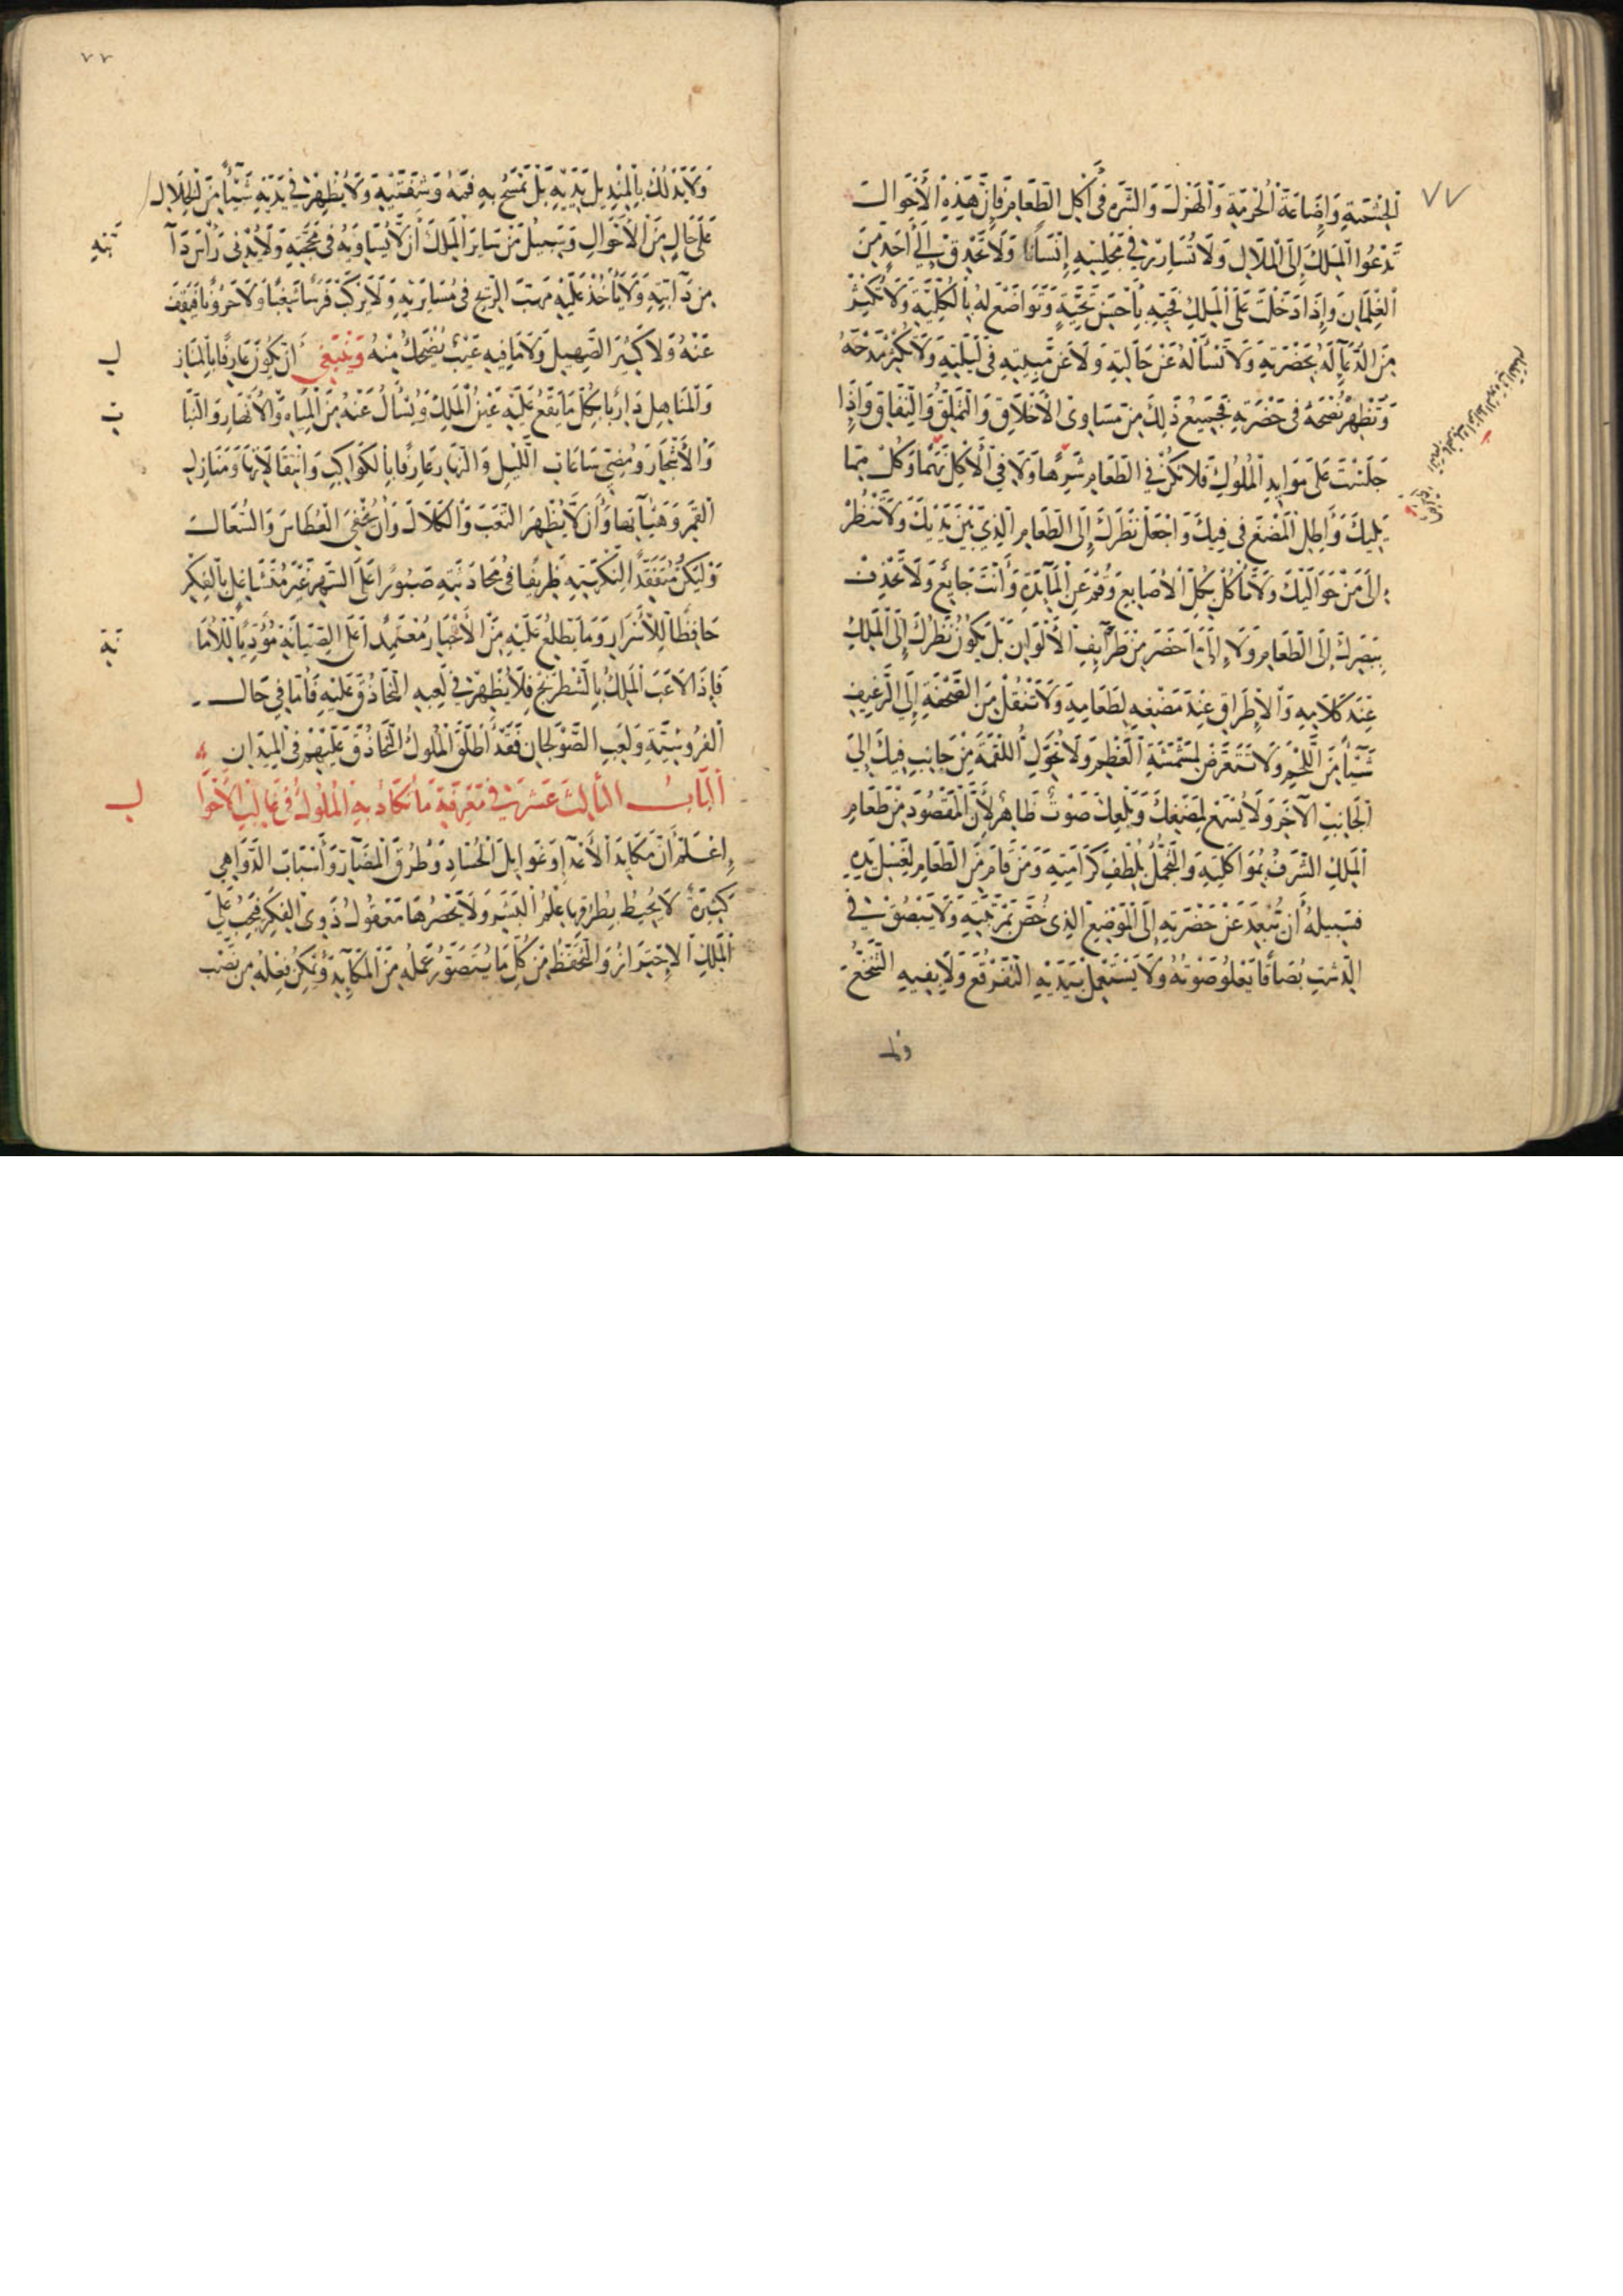 ٧٧
الحشمة وإضاعة الحرمة والهزل والشره في أكل الطعام فإن هذه الأحوال
تدعوا الملك إلى الملال ولا تسارر في مجلسه إنسانا ولا تحدق إلى أحد من
الغلمان وإذا دخلت على الملك فحيه بأحسن تحية وتواضع له بالكلية ولا تكثر
من الدعاء له بحضرته ولا تسأله عن حالته ولا عن مبيته في ليلته ولا تكثر مدحه
وتظهر نصحه في حضرته فجميع ذلك من مساوئ الأخلاق والتملق والنفاق وإذا
جلست على موايد الملوك فلا تكن في الطعام شرها ولا في الأكل نهما وكل مما
يليك وأطل المضغ في فيك واجعل نظرك إلى الطعام الذي بين يديك ولا تنظر
إلى من حواليك ولا تأكل بكل الأصابع وقم عن المآئدة وأنت جايع ولا تحذف
ببصرك إلى الطعام ولا إلى ما حضر من طرآيف الألوان بل يكون نظرك إلى الملك
عند كلامه والإطراق عند مضغه لطعامه ولا تنقل من الصحفة إلى الرغيف
شيئا من اللحم ولا تتعرض لمشمشة العظم ولا تحول اللقمة من جانب فيك إلى
الجانب الآخر ولا يسمع لمضغك وبلعك صوت ظاهر لأن المقصود من طعام
الملك الشرف بمواكلته والتجمل بلطف كرامته ومن قام من الطعام لغسل يده
فسبيله أن يبعد عن حضرته إلى الموضع الذي خص بمرتبته ولا يبصق في
الدست بصاقا يعلو صوته ولا يستعمل بيديه التفرقع ولا بفيه التنخع
ولا
٧٧
ولا يدلك بالمنديل يديه بل يمسح به فمه وشفتيه ولا يظهر في يديه شيئا من الخلال
على حال من الأحوال وسبيل من ساير الملك أن لا يساويه في محجته ولا يدني رأس دآ
بته
من دآبته ولا يأخذ عليه مهب الريح في مسايرته ولا يركب فرسا شغبا ولا حرونا فيقف
عنه ولا كثير الصهيل ولا ما فيه عيب يضحك منه وينبغي أن يكون عارفا بالمناز
ل
والمناهل داريا بكل ما يقع عليه عين الملك ويسأل عنه من المياه والأنهار والنبا
ت
والأشجار ومضي ساعات الليل والنهار عارفا بالكواكب وانتقالاتها ومنازل
القمر وهيآتها وأن لا يظهر التعب والكلال وأن يخفي العطاس والسعال
وليكن متفقدا لنكرته ظريفا في محادثته صبورا على السهر غير متشاغل بالفكر
حافظا للأسرار وما يطلع عليه من الأخبار معتمدا على الصيانة مؤديا للأما
نة
فإذا لاعب الملك بالشطرنج فلا يظهر في لعبه التحاذق عليه فأما في حال
الفروسية ولعب الصولجان فقد أطلق الملوك التحاذق عليهم في الميدان
الباب الثالث عشر في معرفة ما تكاد به الملوك في غالب الأحوا
ل
إعلم أن مكايد الأعدآء وغوايل الحساد وطرق المضآر وأسباب الدواهي
كثيرة لا يحيط بطرقها علم البشر ولا يحصرها معقول ذوي الفكر فيجب على
الملك الإحتراز والتحفظ من كل ما يتصور عمله من المكآيد ويمكن فعله من نصب